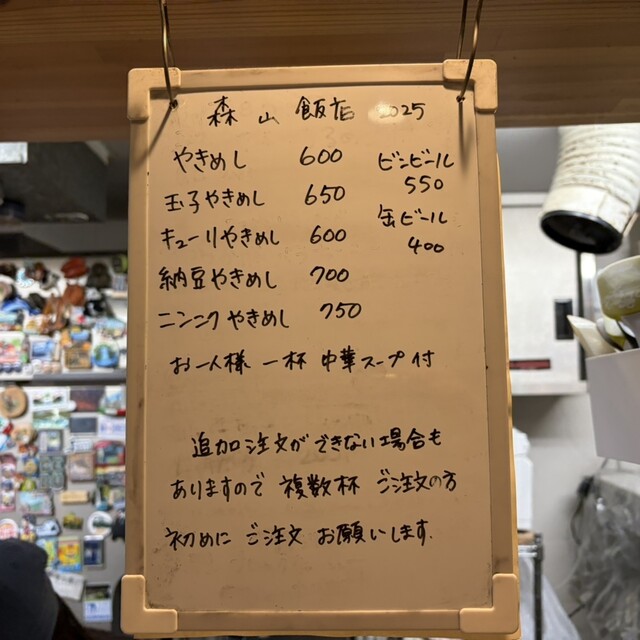 森山飯店 2025
やきめし 600 ビンビール
玉子やきめし 650 550
キューリやきめし 600 缶ビール
400
納豆やきめし 700
ニンニクやきめし 750
お一人様 一杯 中華スープ付
追加注文ができない場合も
ありますので 複数杯 ご注文の方
初めに ご注文 お願いします.